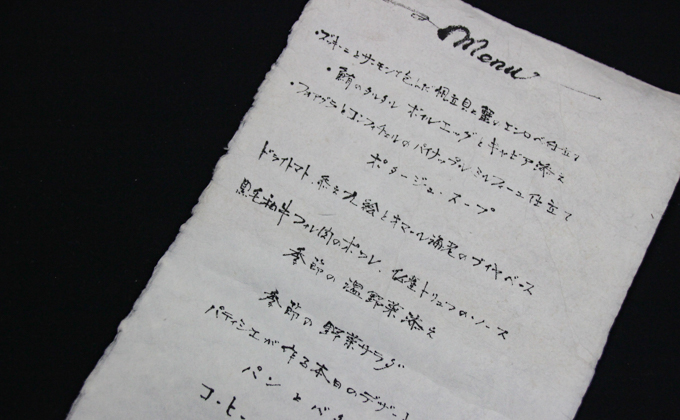 Menu
・ズッキーニとサーモンで包んだ帆立貝と蟹のエンロペ仕立て
・鮪のタルタル ポーチドエッグとキャビア添え
・フォアグラとコンフィチュルのパイナップル ミルフィーユ仕立て
ポタージュ・スープ
ドライトマト 香る九絵とオマール海老のブイヤベース
黒毛和牛フィレ肉のポワレ、 トリュフのソース
季節の温野菜添え
季節の野菜サラダ
パティシエが作る本日のデザート
パンとバター
コーヒー